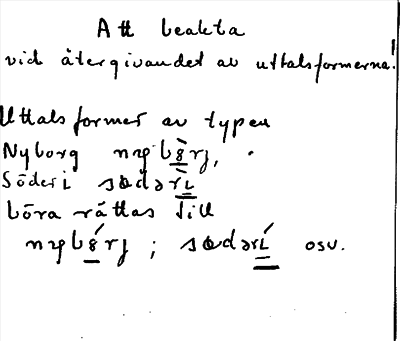 Att beakta
vid återgivandet av uttalsformerna!
Uttalsformer av typen
Nyborg nyb8̀rj,
Söderi sødərì
böra rättas till
nyb8́rj ; sødərí osv.